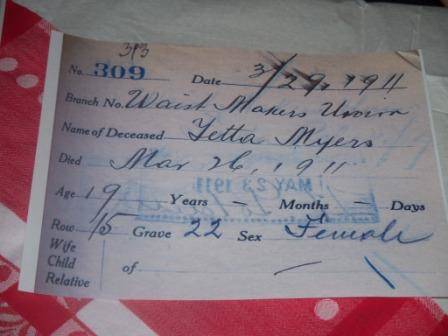 313
No. 309 Date 3/29, 1911
Branch No. Waist Makers Union
Name of Deceased Yetta Myers
Died Mar 26, 1911
MAY 23 1911
Age 19 Years - Months - Days
Row 15 Grave 22 Sex Female
Wife
Child of
Relative